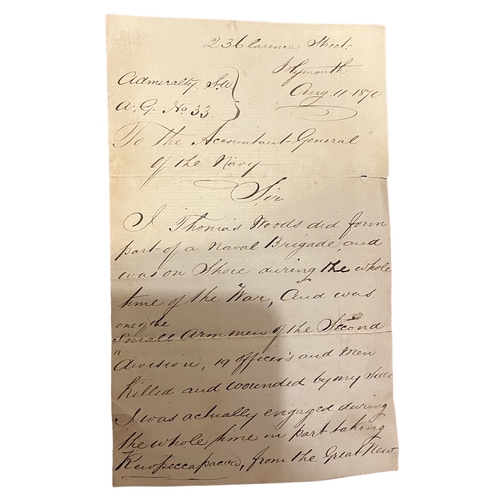 23 Clarence Street.
Plymouth.
Aug 11 1870
Admiralty S.W
A.G. No 33
To the Accountant General
of the Navy
Sir
I Thomas Woods did form
part of a Naval Brigade, and
was on Shore during the whole
time of the War, And was
one of the
Small Arm men of the Second
Division, 19 officers and Men
Killed and wounded by my Side
I was actually engaged during
the whole time in part taking
Rewopeccapacca, from the Great New